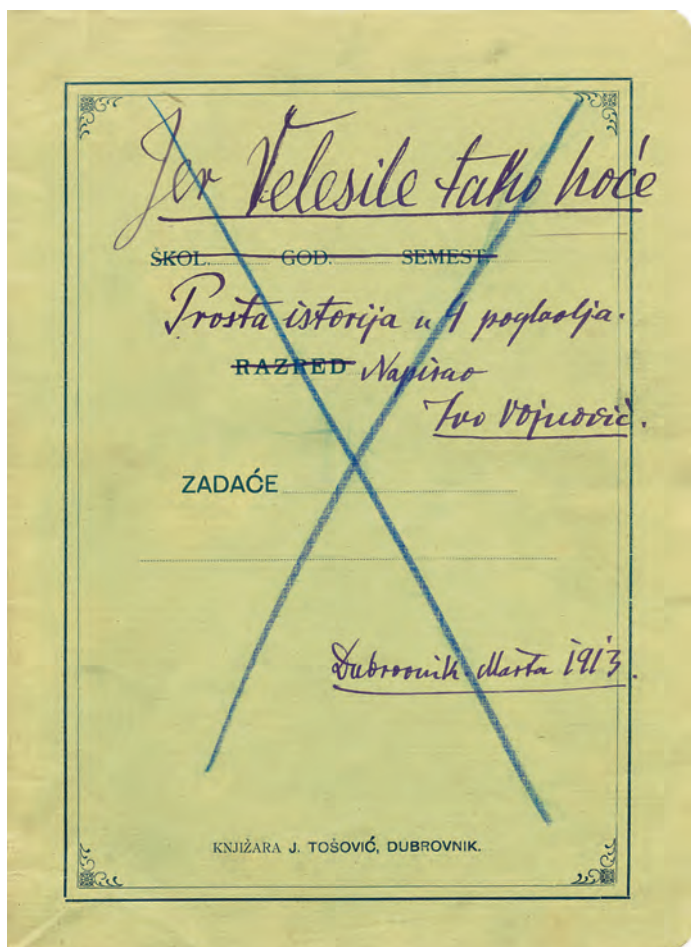 Jer Velesile tako hoće
ŠKOL. GOD. SEMEST.
Prosta istorija u 4 poglavlja.
RAZRED Napisao
Ivo Vojnović.
ZADAĆE
Dubrovnik. Marta 1913.
KNJIŽARA J. TOŠOVIĆ, DUBROVNIK.